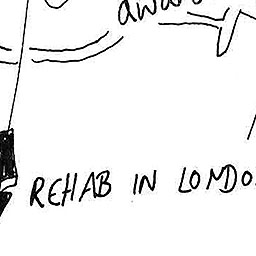 REHAB IN LONDO